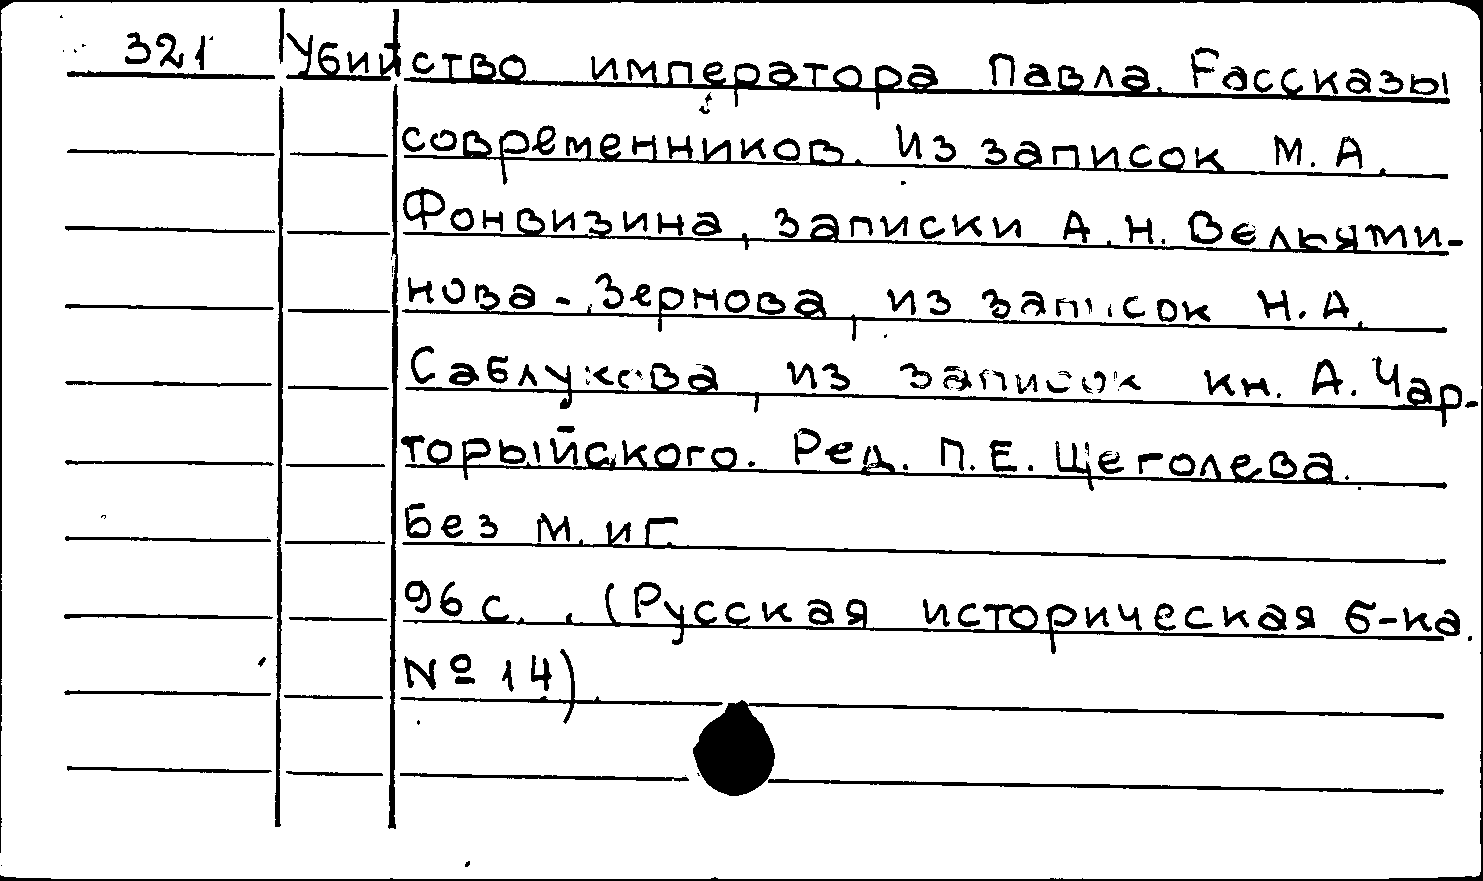 321 Убийство императора Павла. Рассказы
современников. Из записок М. А.
Фонвизина, записки А. Н. Вельями-
нова-Зернова, из записок Н. А.
Саблукова, из записок кн. А. Чар-
торыйского. Ред. П. Е. Щеголева.
Без м. и г.
96 с. . (Русская историческая б-ка.
№ 14).